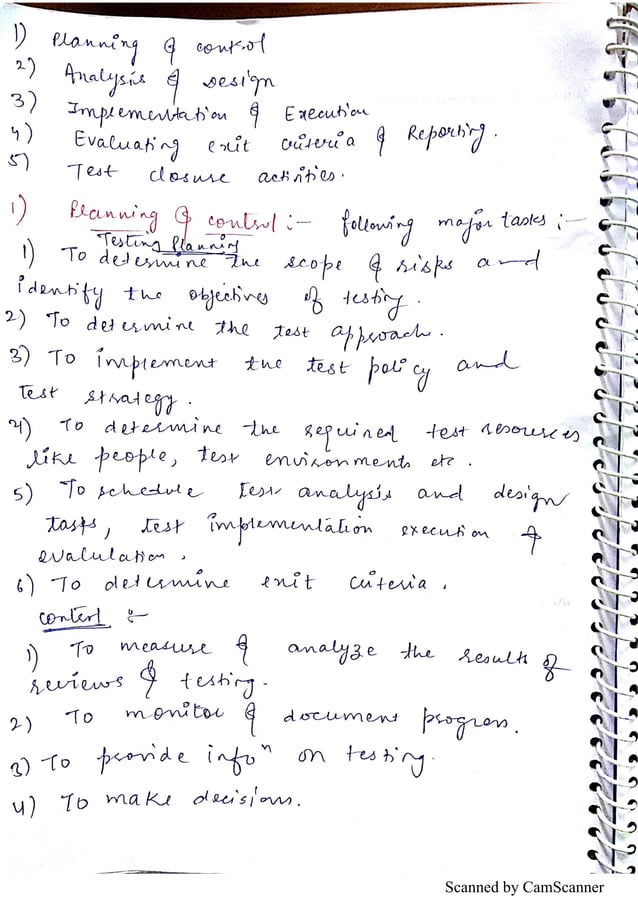 1) Planning & control
2) Analysis & Design
3) Implementation & Execution
4) Evaluating exit criteria & Reporting.
5) Test closure activities.
1) Planning & control :- following major tasks :-
Testing Planning
1) To determine the scope & risks and
identify the objectives of testing.
2) To determine the test approach.
3) To implement the test policy and
test strategy.
4) To determine the required test resources
like people, test environments etc.
5) To schedule test analysis and design
tasks, test implementation execution &
evalulation.
6) To determine exit criteria.
control :-
1) To measure & analyze the results of
reviews & testing.
2) To monitor & document progress.
3) To provide infoⁿ on testing.
4) To make decisions.
Scanned by CamScanner